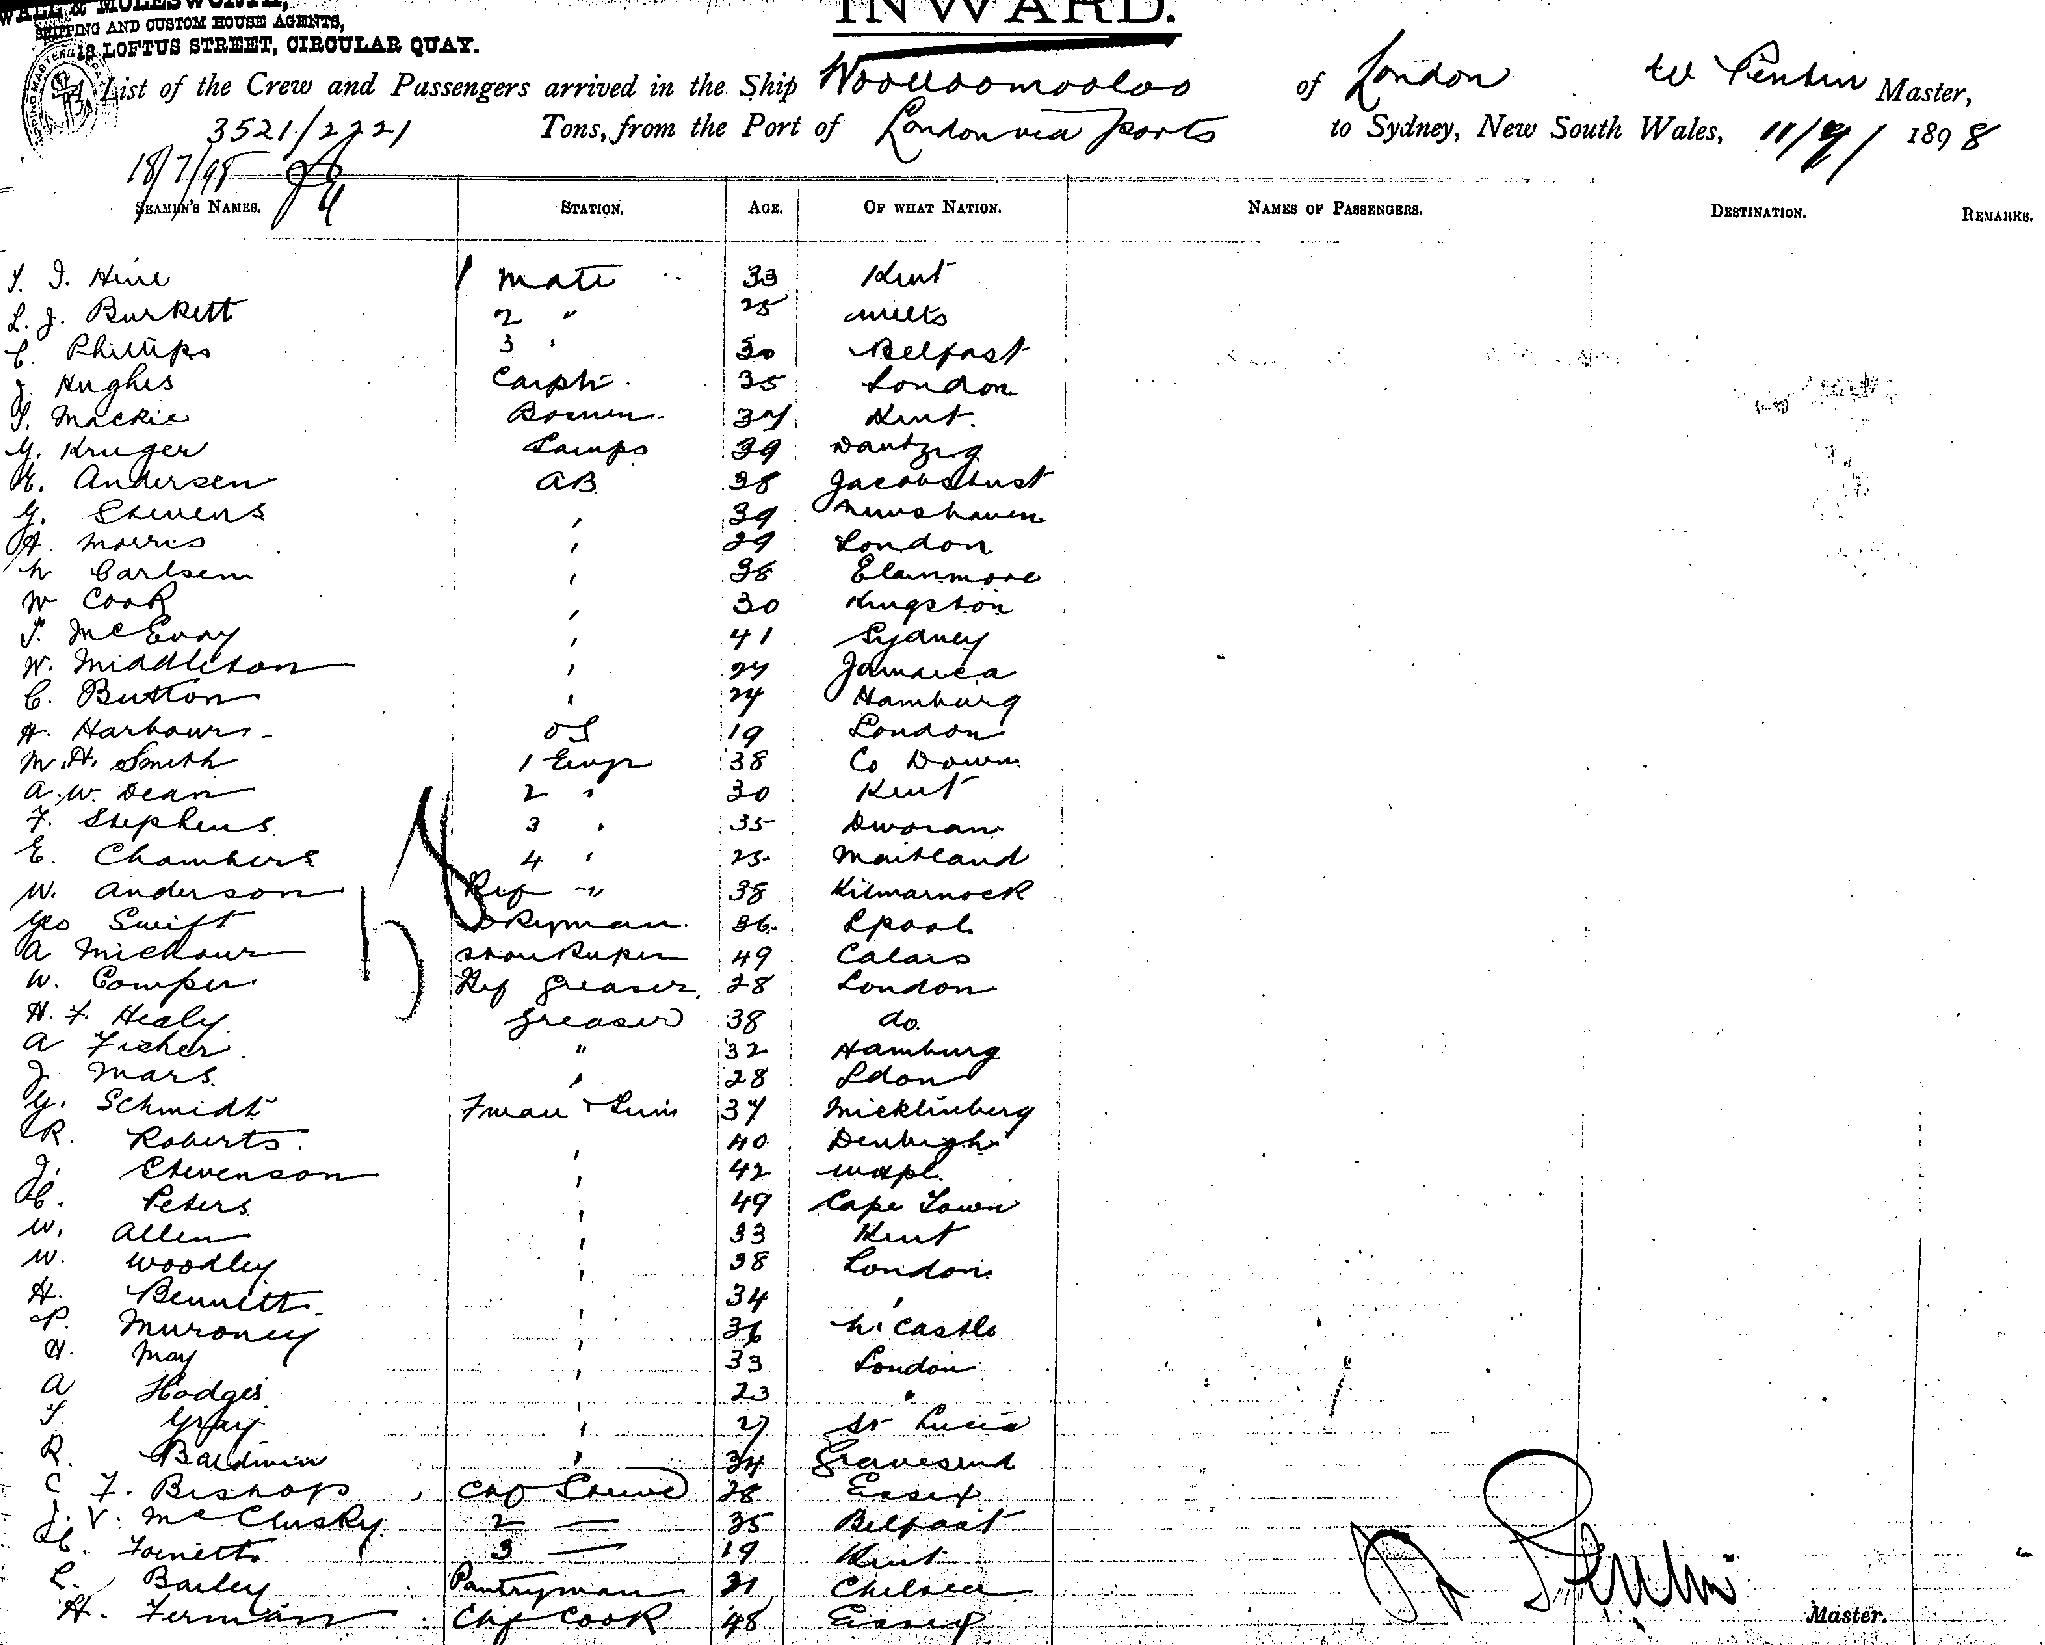 WALL & MOLESWORTH,
SHIPPING AND CUSTOM HOUSE AGENTS,
18 LOFTUS STREET, CIRCULAR QUAY.
INWARD.
A List of the Crew and Passengers arrived in the Ship Woolloomooloo of London Master,
3521/2221 Tons, from the Port of London via ports to Sydney, New South Wales, 11/7/ 1898
18/7/98
SEAMEN'S NAMES. STATION. AGE. OF WHAT NATION. NAMES OF PASSENGERS. DESTINATION. REMARKS.
Hine 1 Mate 33 Kent
L. J. Burkett 2 " 25
C. Phillips 3 " 30 Belfast
J. Hughes Carptr 35 London
Mackie 37 Kent.
G. Kruger Lamps 39 Dantzig
Andersen AB 38
G. Stevens , 39
H. Morris , 29 London
Carlsen , 38
W Cook , 30 Kingston
McEvoy , 41 Sydney
W. Middleton , 27 Jamaica
C. Button , 24 Hamburg
H. Harbour OS 19 London
M. H. Smith 1 Engr 38 Co Down
A. W. Dean 2 " 30 Kent
F. Stephens 3 " 35
E. Chambers 4 " 25 Maitland
W. Anderson Ref " 38 Kilmarnock
Geo Swift 36 Lpool
A 49 Calais
W. Comper Ref Greaser 28 London
H. F. Healy Greaser 38 do.
A Fisher " 32 Hamburg
J. Mars " 28 Ldon
G. Schmidt 37
R. Roberts , 40 Denbigh
J. Stevenson , 42
C. Peters , 49 Cape Town
W. Allen , 33 Kent
W. Woodley , 38 London
H. Bennett , 34 "
P. Muroney , 36 N. Castle
H. May , 33 London
A Hodges , 23 "
Gray , 27 St Lucia
R. Baldwin , 34 Gravesend
C F. Bishop 28 Essex
J. V. McClusky 2 — 35 Belfast
3 — 19 Kent
L. Bailey Pantryman 31 Chelsea
H. Cook 48 Essex
Master.